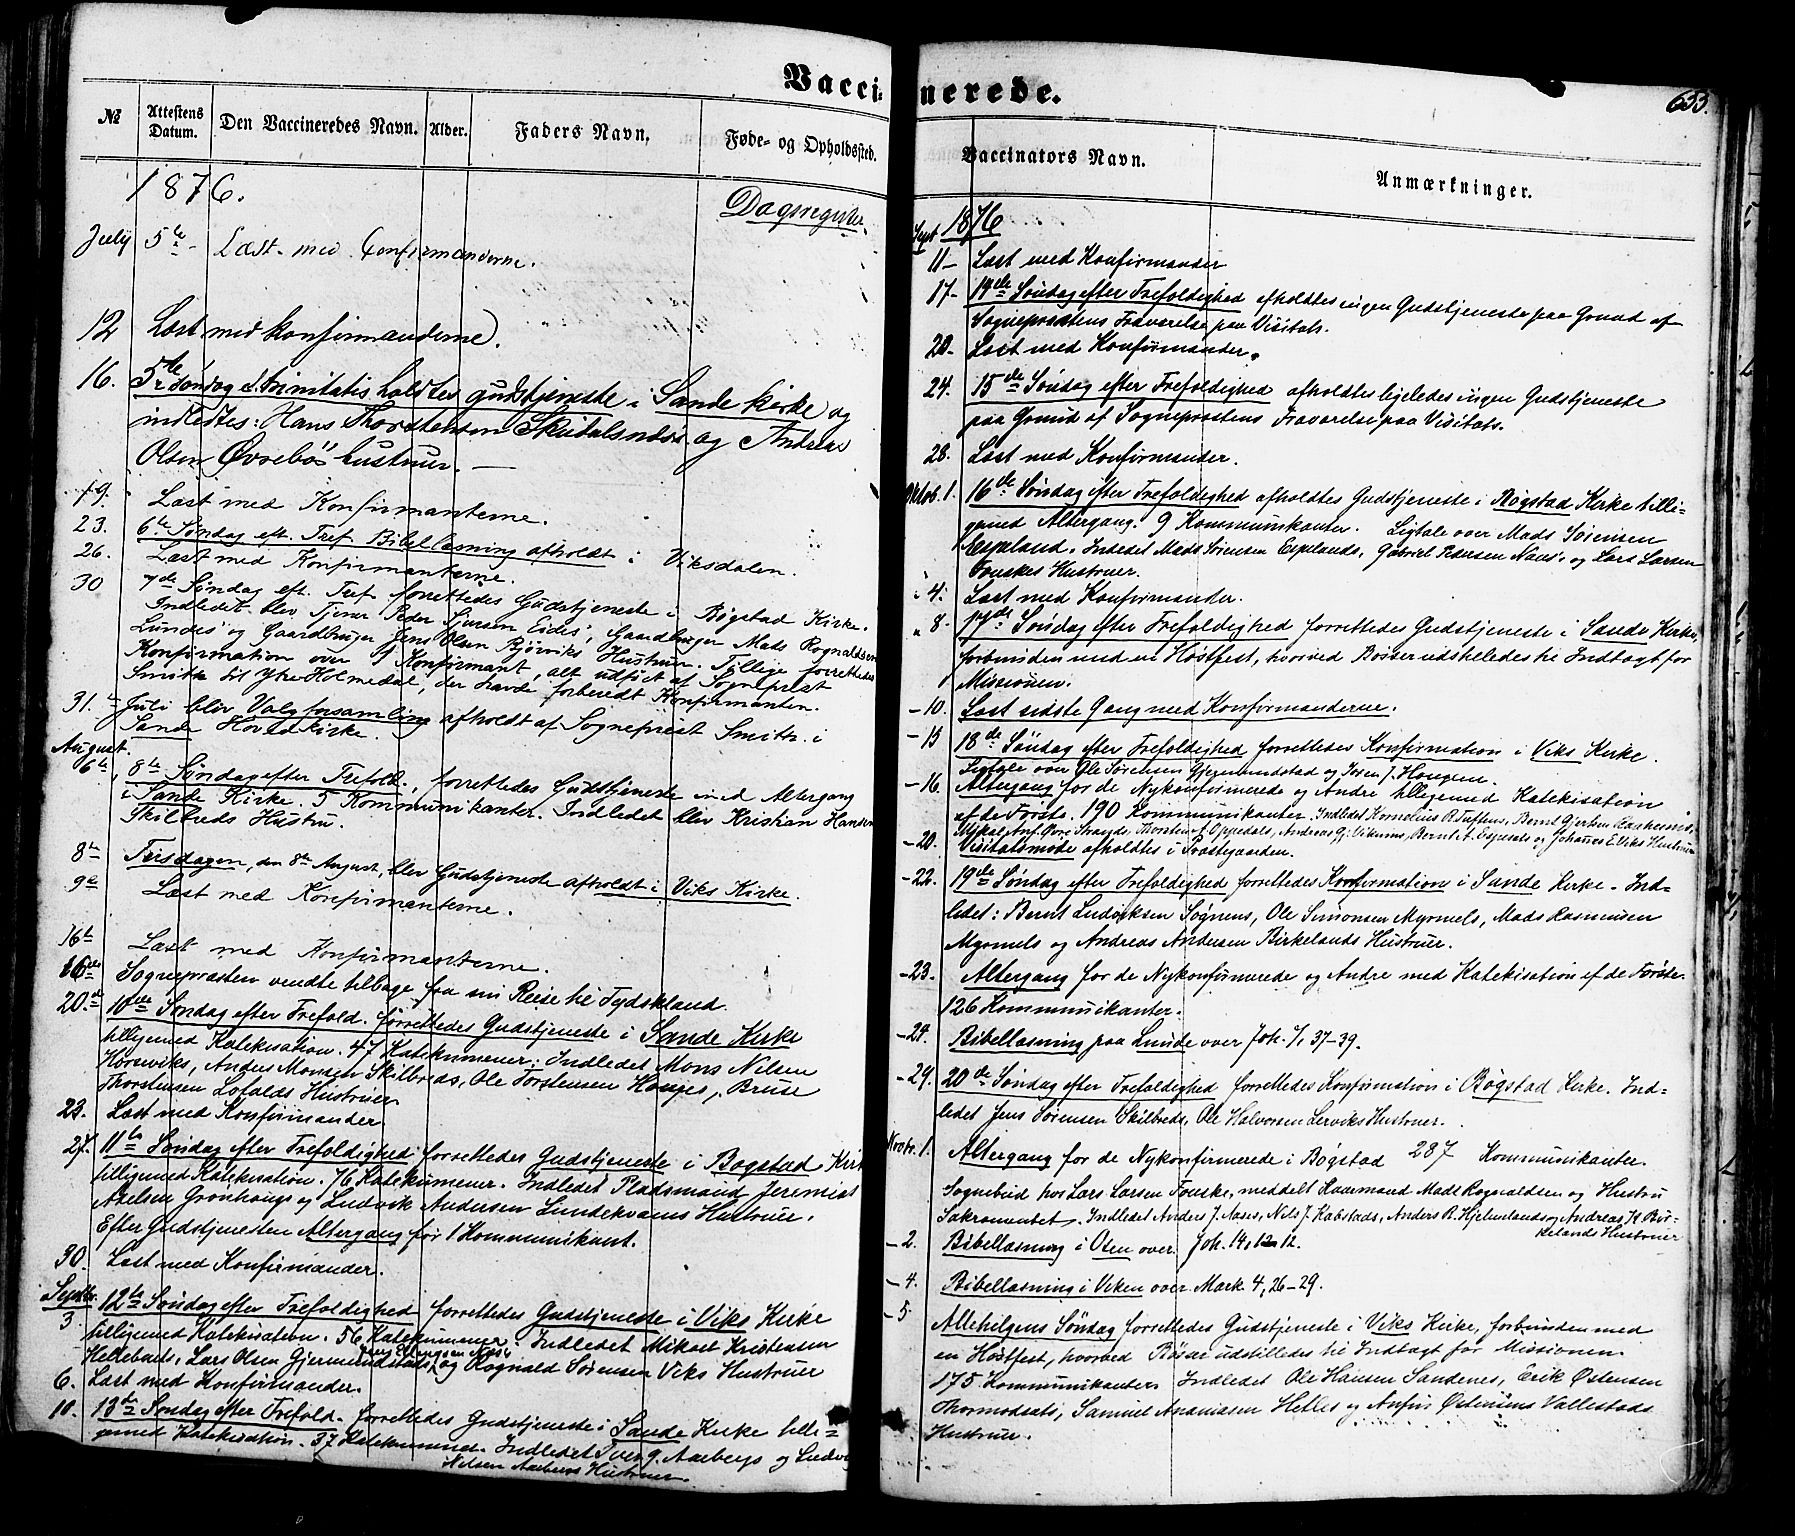 Vacci=
№ Attestens Datum. Den Vaccineredes Navn. Alder. Faders Navn. Føde- og Opholdssted.
1876.
Dagsregister.
July 5te Læst med Confirmanderne.
12 Læst med Konfirmanderne.
16. 5te Søndag e. trinitatis holdtes gudstjeneste i Sande kirke og
indledtes: Hans Thorstensen Skudalsnæs og Andreas
Olsen Øvrebös hustruer. —
19. Læst med Konfirmanterne.
23. 6te Søndag eft. Tref. Bibellæsning afholdt i Viksdalen.
26. Læst med Konfirmanterne.
30 7de Søndag eft. Tref. forrettedes Gudstjeneste i Bøgstad Kirke.
Indledet blev Tjener Peder Sjursen Eides, Gaardbruger Mads Rognaldsen
Lundes og Gaardbruger Jens Olsen Bjørviks Hustru. Tillige forrettedes
Konfirmation over 1 Konfirmant, alt udført af Sogneprest
Smith til Ytre Holmedal, der havde forberedt Konfirmanten.
31. Juli blev Valgforsamling afholdt af Sogneprest Smith i
Sande Hovedkirke.
August.
6te 8te Søndag efter Trefold., forrettedes Gudstjeneste med Altergang
i Sande Kirke. 5 Kommunikanter. Indledet blev Kristian Hansen
Skilbreds Hustru.
8te Tirsdagen, den 8te August, blev Gudstjeneste afholdt i Viks Kirke.
9de Læst med Konfirmanterne.
16te Læst med Konfirmanterne.
16de Sogneprasten vendte tilbage fra sin Reise til Tydskland.
20de 10de Søndag efter Trefold. forrettedes Gudstjeneste i Sande Kirke
tilligemed Katekisation. 47 Katekumener. Indledet Mons Nilsen
Horsviks, Anders Monsen Skilbreds, Ole Torstensen Houges, Brüse
Thorstensen Lofalds Hustruer
23. Læst med Konfirmander
27. 11te Søndag efter Trefoldighed forrettedes Gudstjeneste i Bøgstad Kirke
tilligemed Katekisation. 76 Katekumener. Indledet Pladsmand Jeremias
Axelsen Grønhougs og Ludvik Andersen Lundekvams Hustruer.
Efter Gudstjenesten Altergang for 1 Kommunikant.
30. Læst med Konfirmander.
Septbr.
3 12te Søndag efter Trefoldighed forrettedes Gudstjeneste i Viks Kirke
tilligemed Katekisation. 56 Katekumener. Indledet Mikael Kristensen
Hellebøets, Lars Olsen Gjermundstads, og Rognald Sørensen Viks Hustruer
6. Læst med Konfirmander.
10. 13de Søndag efter Trefold. forrettedes Gudstjeneste i Sande Kirke tilli=
gemed Katekisation. 37 Katekumener. Indledet Iver G. Aarbergs og Ludvig
Nilsen Aarbergs Hustruer.
nerede.
633.
Vaccinators Navn. Anmærkninger.
Sept 1876
11- Læst med Konfirmander
17- 14de Søndag efter Trefoldighed afholdtes ingen Gudstjeneste paa Grund af
Sogneprostens Fraværelse paa Visitats.
20- Læst med Konfirmander.
24. 15de Søndag efter Trefoldighed afholdtes ligeledes ingen Gudstjeneste
paa Grund af Sogneprostens Fraværelse paa Visitats.
28. Læst med Konfirmander.
Oktob. 1. 16de Søndag efter Trefoldighed afholdtes Gudstjeneste i Bøgstad Kirke tilli=
gemed Altergang. 9 Kommunikanter. Ligtale over Mads Sørensen
Espeland. Indledet Mads Sørensen Espelands, Gabriel Nøus, og Lars Larsen
Fouskes Hustruer.
4. Læst med Konfirmander.
" 8. 17de Søndag efter Trefoldighed forrettedes Gudstjeneste i Sande Kirke,
forbunden med en Høstfest, hvorved Bøsser udstilledes til Indtægt for
Missionen.
-10. Læst sidste Gang med Konfirmanderne.
-15 18de Søndag efter Trefoldighed forrettedes Konfirmation i Viks Kirke.
Ligtale over Ole Sørensen Gjermundstad og J. Hougen.
-16. Altergang for de Nykonfirmerede og Andre tilligemed Katekisation
af de Første. 190 Kommunikanter. Indledet Kornelius R. Tuftens, Bernt Gjertsen
Mikal Strands, Thorsten A. Oppedals, Andreas G. Vikums, Bernt A. Espesets og Johannes E. Viks Hustruer
-20. Visitatsmøde afholdtes i Prostegaarden.
-22. 19de Søndag efter Trefoldighed forrettedes Konfirmation i Sande Kirke. Ind=
ledet: Bernt Ludviksen Sognens, Ole Simonsen Myrmels, Mads Rasmussen
Myrmels og Andreas Andersen Birkelands Hustruer.
-23. Altergang for de Nykonfirmerede og Andre med Katekisation af de Første.
126 Kommunikanter.
-24. Bibellæsning paa Lunde over Joh. 7, 37-39.
-29. 20de Søndag efter Trefoldighed forrettedes Konfirmation i Bøgstad Kirke. Ind=
ledet Jens Sørensen Skilbreds, Ole Halvorsen Lerviks Hustruer.
Novbr. 1. Altergang for de Nykonfirmerede i Bøgstad 287 Kommunikanter.
Sognebud hos Lars Larsen Fouske, meddelt Huusmand Mads Rognaldsen og Hustru
Sakramentet. Indledet Anders J. Aases, Nils J. Kabstads, Anders R. Hjelmelands og Andreas K. Bir-
kelands Hustruer
-2. Bibellæsning i Osen over Joh. 14, 12.
-4. Bibellæsning i Viken over Mark. 4, 26-29.
-5 Allehelgens Søndag forrettedes Gudstjeneste i Viks Kirke, forbunden med
en Høstfest, hvorved Bøsser udstilledes til Indtægt for Missionen.
175 Kommunikanter. Indledet Ole Hansen Sandenes, Erik Østensen
Thormodsæts, Samuel Ananiasen Hetles og Anfin Østensens Vallestads
Hustruer.